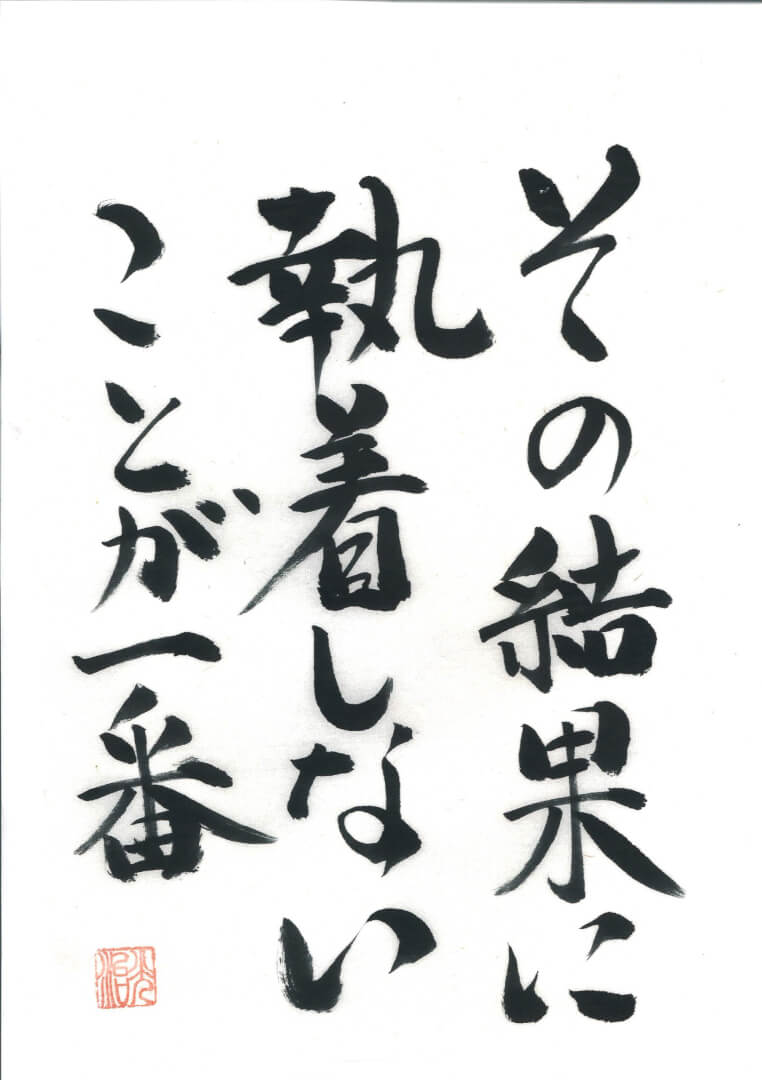 その結果に
執着しない
ことが一番